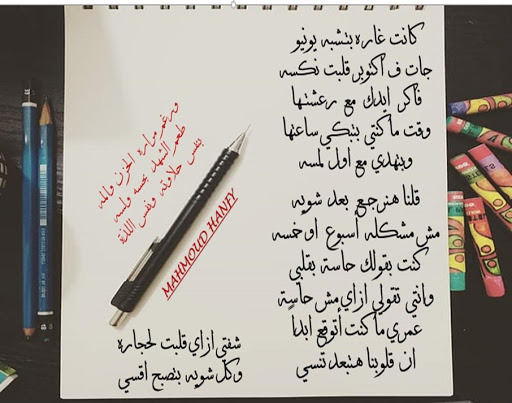 كانت غاره بتشبه يونيو
جات ف أكتوبر قلبت نكسه
فاكر إيدك مع رعشتها
وقت ماكنتي بتبكي ساعتها
وبتهدي مع اول لمسه
قلنا هنرجع بعد شويه
مش مشكله أسبوع او خمسه
كنت بقولك حاسة بقلبي
وانتي تقولي ازاي مش حاسة
عمري ماكنت أتوقع ابدا
ان قلوبنا هتبعد تنسي
شفتي ازاي قلبت لحجاره
وكل شويه بتصبح اقسي
ورغم مرارة الحزن والمه
طعم الشهد بحسه ولسه
بنفس حلاوته ونفس اللذة
MAHMOUD HANFY